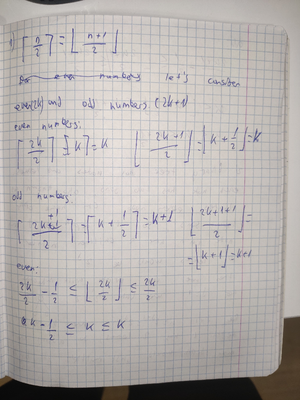 1) ⌈n/2⌉ = ⌊(n+1)/2⌋
even numbers let's consider
even(2k) and odd numbers (2k+1)
even numbers:
⌈2k/2⌉ = ⌈k⌉ = k ⌊(2k+1)/2⌋ = ⌊k + 1/2⌋ = k
odd numbers:
⌈(2k+1)/2⌉ = ⌈k + 1/2⌉ = k+1 ⌊(2k+1+1)/2⌋ =
= ⌊k+1⌋ = k+1
even:
2k/2 - 1/2 ≤ ⌊2k/2⌋ ≤ 2k/2
k - 1/2 ≤ k ≤ k